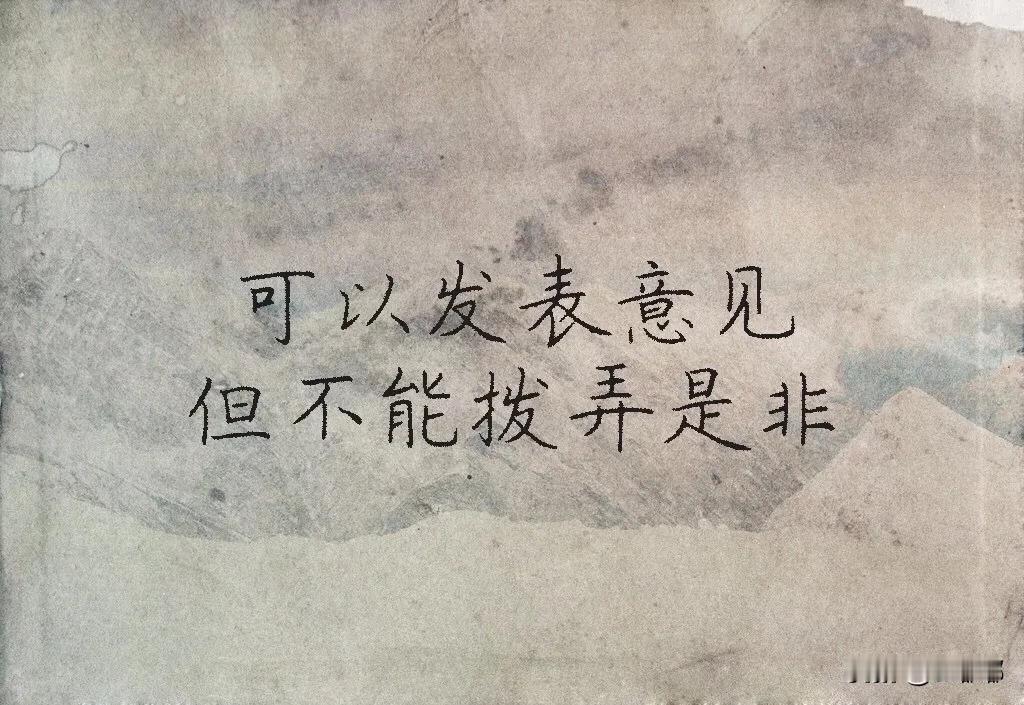 可以发表意见
但不能拨弄是非